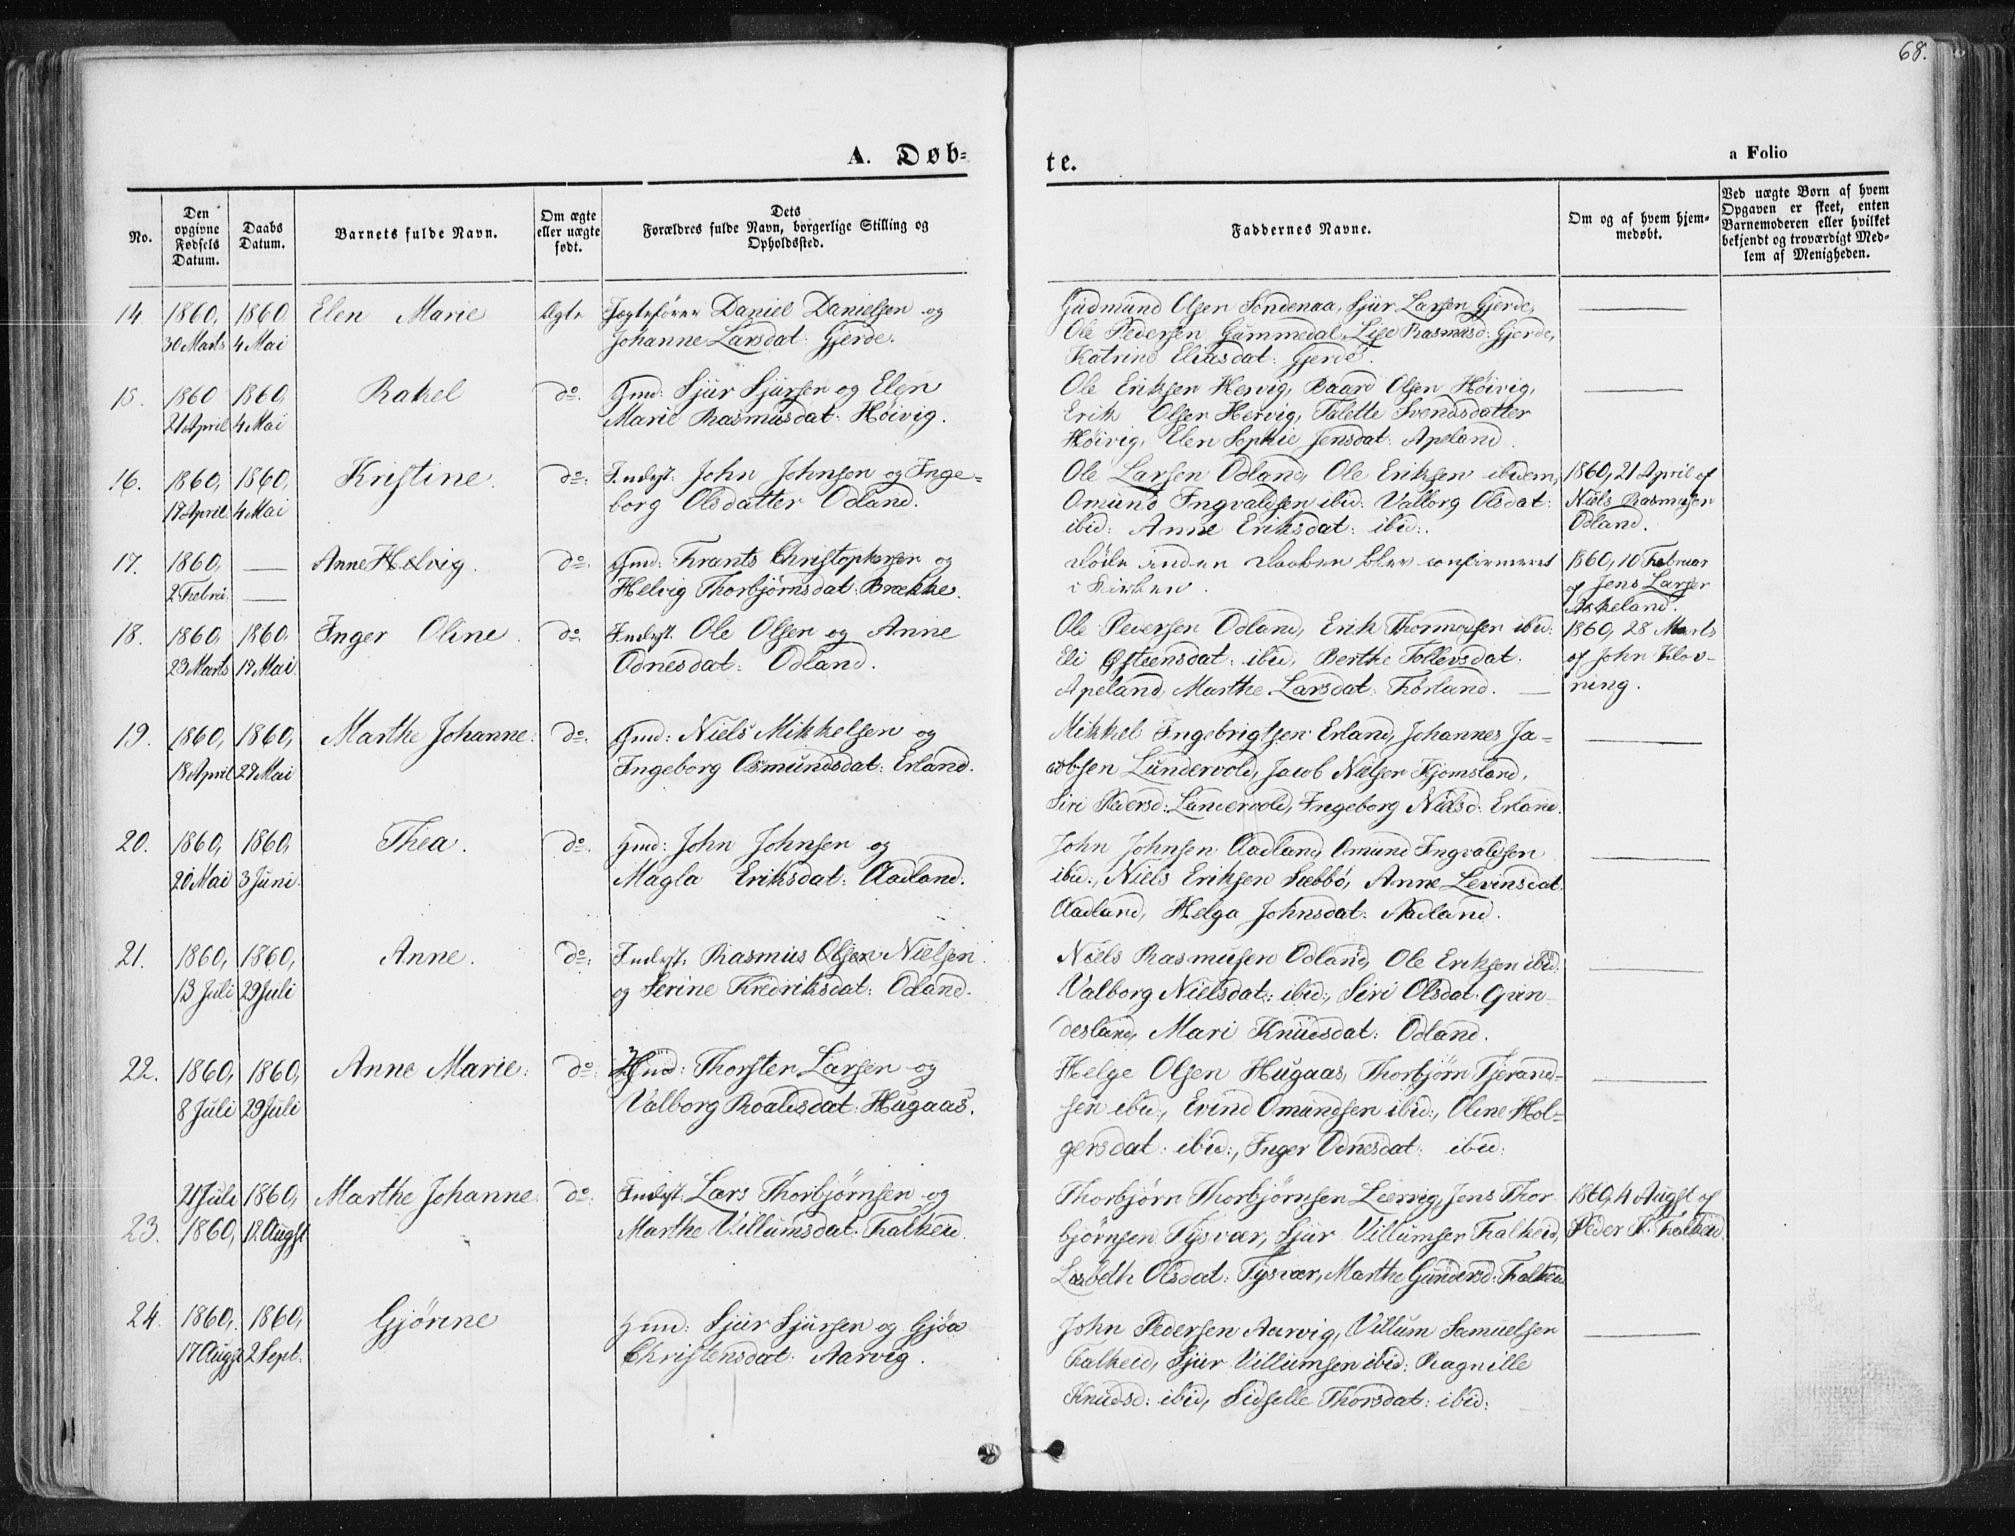 68.
A. Døb-
te.
a Folio
No.
Den opgivne Fødsels Datum.
Daabs Datum.
Barnets fulde Navn.
Om ægte eller uægte født.
Dets Forældres fulde Navn, borgerlige Stilling og Opholdssted.
Faddernes Navne.
Om og af hvem hjemmedøbt.
Ved uægte Born af hvem Opgaven er skeet, enten Barnemoderen eller hvilket bekjendt og troværdigt Medlem af Menigheden.
14. 1860, 1860 Elen Marie Ægte Daniel Danielsen og
30 Marts 4 Mai Johanne Larsdat: Gjerde.
Gudmund Olsen Søndenaa, Sjur Larsen Gjerde,
Ole Pedersen Gummedal, Lise Rasmusd: Gjerde,
Katrine Eliasdat: Gjerde.
15. 1860 1860, Rakel do. Gmd: Sjur Sjursen og Elen
21 April 4 Mai Marie Rasmusdat: Høivig.
Ole Eriksen Hervig, Baard Olsen Høivig,
Erik Olsen Hervig, Talette Svendsdatter
Høivig, Elen Sophie Jensdat: Apeland.
16. 1860, 1860, Kristine. do. Inderst. John Johnsen og Inge-
19 April 4 Mai borg Olsdatter Odland.
Ole Larsen Odland, Ole Eriksen ibidem,
Omund Ingvaldsen ibid: Valborg Olsdat:
ibid: Anne Eriksdat: ibid:.
1860, 21 April af
Niels Rasmusen
Odland.
17. 1860, — Anne Helvig. do. Gmd: Frants Christophersen og
2 Febri. — Helvig Thorbjørnsdat: Brække.
Døde inden Daaben blev confirmeret
i Kirken.
1860, 10 Februar
af Jens Larsen
Askeland.
18. 1860 1860, Inger Oline. do. Inderst. Ole Olsen og Anne
23 Marts 19 Mai. Odnesdat: Odland.
Ole Pedersen Odland, Erik Thormodsen ibid:
Eli Østeensdat: ibid, Berthe Tollevsdat:
Apeland, Marthe Larsdat: Førland. —
1860, 28 Marts
af John Klov-
ning.
19. 1860, 1860, Marthe Johanne: do. Gmd: Niels Mikkelsen og
18 April 27 Mai Ingeborg Osmundsdat: Erland.
Mikkel Ingebrigtsen Erland, Johannes Ja-
cobsen Lundervold, Jacob Nielsen Kjomsland,
Siri Pedersd: Lundervold, Ingeborg Nielsd: Erland.
20. 1860, 1860, Thea. do. Gmd: John Johnsen og
20 Mai 3 Juni. Magla Eriksdat: Aadland.
John Johnsen Aadland, Omund Ingvaldsen
ibid:, Niels Eriksen Sæbbø, Anne Levinsdat.
Aadland, Helga Johnsdat: Aadland.
21. 1860, 1860, Anne. do. Inderst. Rasmus Olsen Nielsen
13 Juli 29 Juli og Serine Fredriksdat: Odland.
Niels Rasmusen Odland, Ole Eriksen ibid:
Valborg Nielsdat: ibid:, Siri Olsdat: Grin-
desland, Mari Knudsdat: Odland.
22. 1860, 1860, Anne Marie: do. Gmd: Thorsten Larsen og
8 Juli 29 Juli Valborg Roaldsdat: Hugaas.
Helge Olsen Hugaas, Thorbjørn Tjerand-
sen ibid:, Evind Omundsen ibid:, Oline Hol-
gersdat: ibid:, Inger Odnesdat: ibid:
21 Juli 1860, Marthe Johanne: do. Inderst: Lars Thorbjørnsen og
23. 1860, 12 Augst Marthe Villumsdat. Falkeid.
Thorbjørn Thorbjørnsen Leervig, Jens Thor-
bjørnsen Tysvær, Sjur Villumsen Falkeid,
Lisbeth Olsdat: Tysvær, Marthe Gundersd: Falkeid
1860, 4 Augst af
Peder K. Falkeid
24. 1860, 1860, Gjørine Gmd: Sjur Sjursen og Gjøa
17 Augst 2 Sept. Christensdat: Aarvig.
John Pedersen Aarvig, Villum Samuelsen
Falkeid, Sjur Villumsen ibid: Ragnille
Knudsd: ibid, Sidselle Thorsdat: ibid: